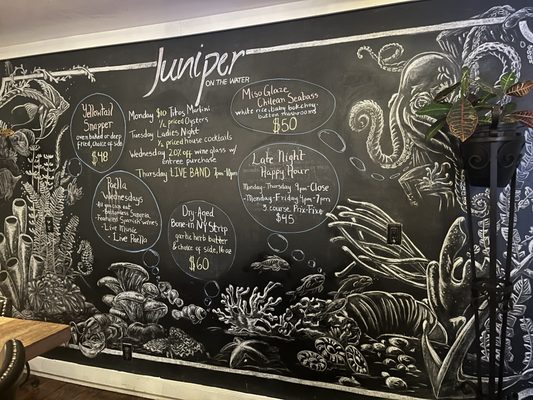 Juniper
ON THE WATER
Yellowtail
Snapper
oven baked or deep
fried, choice of side
$48
Monday $10 Titos Martini
1/2 priced Oysters
Tuesday Ladies Night
1/2 priced house cocktails
Wednesday 20% off wine glass w/
entree purchase
Thursday LIVE BAND 7pm-10pm
Miso Glaze
Chilean Seabass
white rice, baby bokchoy,
button mushrooms
$50
Paella
Wednesdays
- Bottomless
Sangria
- Featured Spanish wines
- Live Music
- Live Paella
Dry-Aged
Bone-in NY Strip
garlic herb butter
& choice of side, 16 oz
$60
Late Night
Happy Hour
Monday-Thursday 9pm-Close
3 course Prix-Fixe
$45